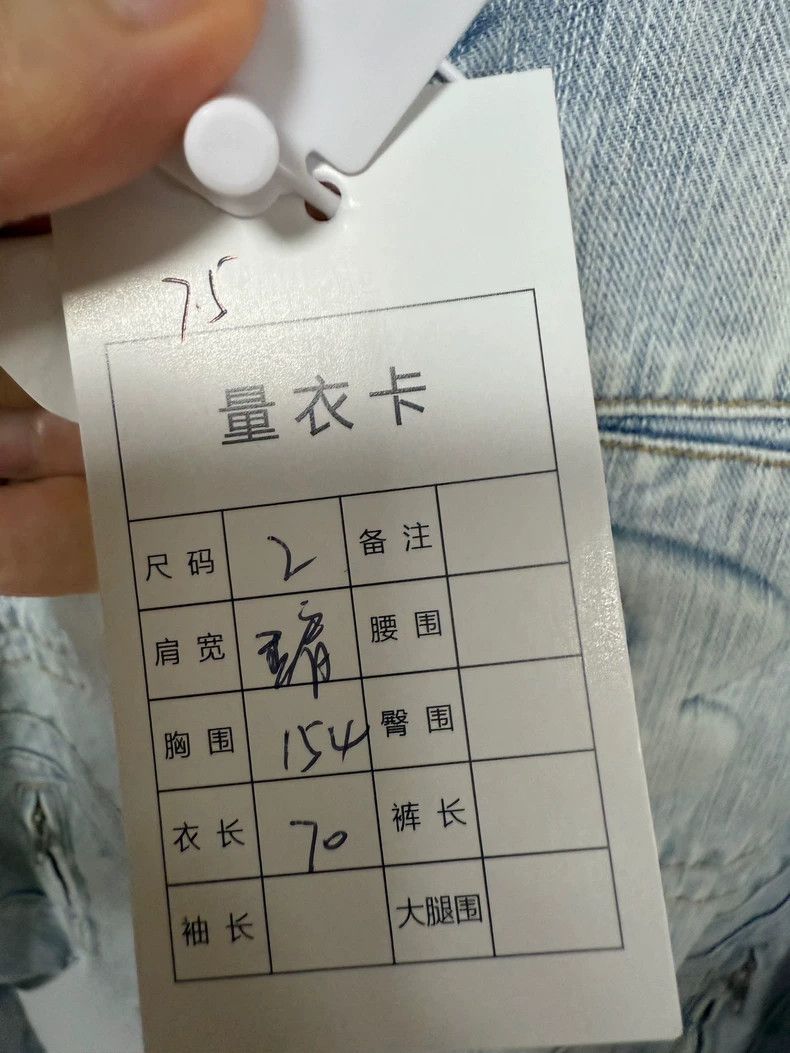 7.5
量衣卡
尺码 2 备注
肩宽 垂肩 腰围
胸围 154 臀围
衣长 70 裤长
袖长 大腿围